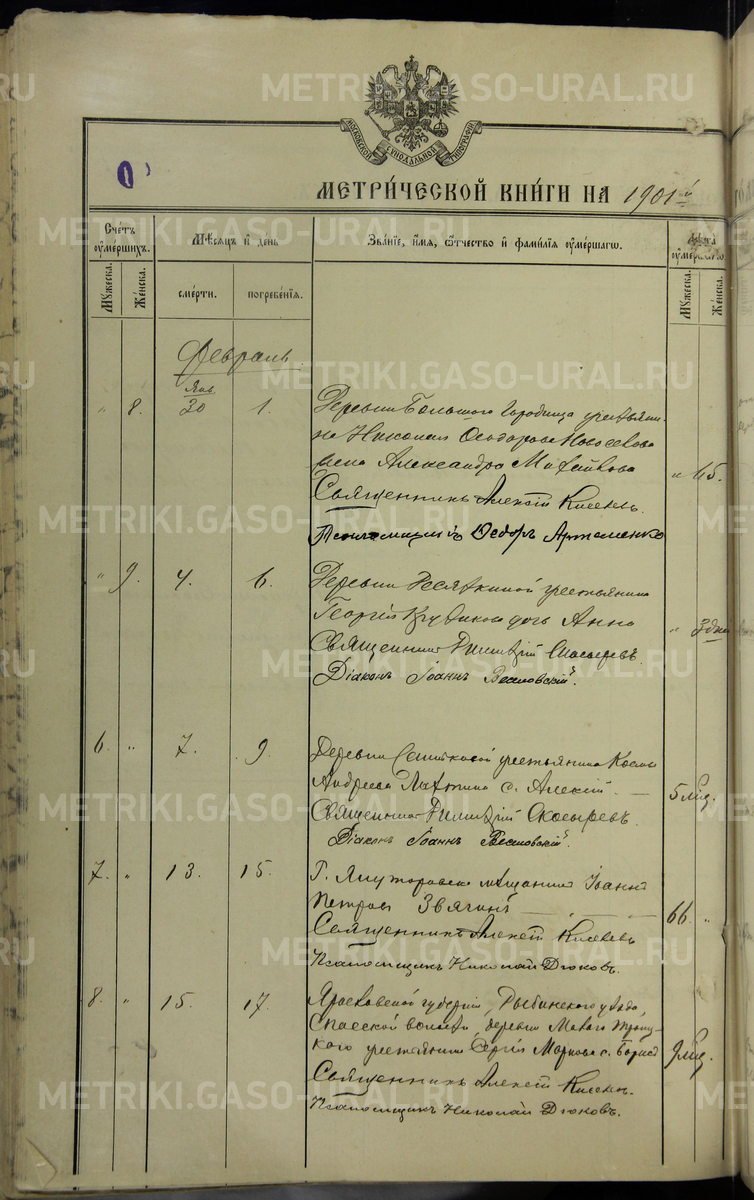 METRIKI.GASO-URAL.RU
МОСКОВСКОЙ СУНОДАЛЬНОЙ ТИПОГРАФІИ
МЕТРИ́ЧЕСКОЙ КНИ́ГИ НА 1901й
Сче́тъ ѹме́ршихъ.
Мѣ́сяцъ и де́нь
Зва́ніе, и́мя, ѻ́тчество и фами́лія ѹме́ршагѡ.
Лѣ́та ѹме́ршагѡ.
Му́жеска.
Же́нска.
сме́рти.
погребе́нія.
Му́жеска.
Же́нска.
Февраль
Янв
" 8. 30 1. Деревни Большого Городища крестьяни-
на Николая Ѳеодорова Новоселова
жена Александра Матвѣйкова " 45.
Священникъ Алексій Киселевъ.
Псаломщикъ Ѳедоръ Артаменко
" 9. 4. 6. Деревни Десяткиной крестьянина
Георгія дочь Анна " 3 дня
Священникъ Димитрій Скосыревъ
Діаконъ Іоаннъ Веселовскій.
6 " 7. 9. Деревни крестьянина Космы
Андреева с. Алексій. 5 мѣс.
Священникъ Димитрій Скосыревъ.
Діаконъ Іоаннъ Веселовскій
7. " 13. 15. Г. Ялуторовска мѣщанинъ Іоаннъ
Петровъ Звягинъ 66 "
Священникъ Алексій Киселевъ
Псаломщикъ Николай Дюковъ.
8. " 15. 17. Ярославской губерніи, Рыбинскаго уѣзда,
Спасской волости, деревни Малаго Троиц-
каго крестьянина Сергія Маркова с. Борисъ 9 мѣс.
Священникъ Алексій Киселевъ.
Псаломщикъ Николай Дюковъ.